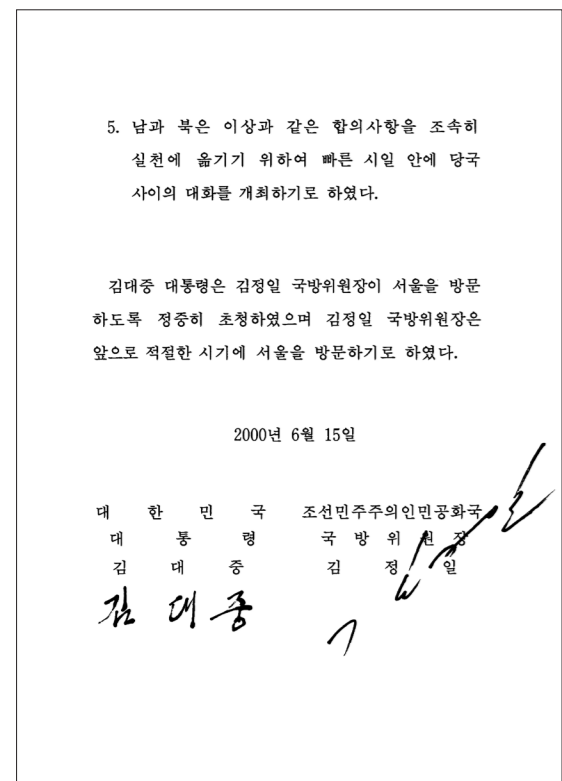 5. 남과 북은 이상과 같은 합의사항을 조속히
실천에 옮기기 위하여 빠른 시일 안에 당국
사이의 대화를 개최하기로 하였다.
김대중 대통령은 김정일 국방위원장이 서울을 방문
하도록 정중히 초청하였으며 김정일 국방위원장은
앞으로 적절한 시기에 서울을 방문하기로 하였다.
2000년 6월 15일
대 한 민 국 조선민주주의인민공화국
대 통 령 국 방 위 원 장
김 대 중 김 정 일
김 대 중